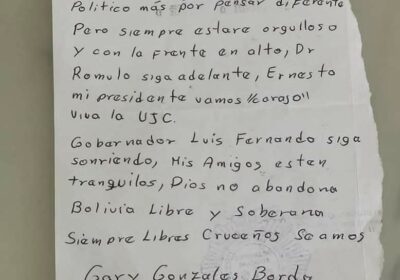 Político más por pensar diferente
Pero siempre estare orgulloso
y con la frente en alto, Dr
Romulo siga adelante, Ernesto
mi presidente vamos carajo"
viva la UJC.
Gobernador Luis Fernando siga
sonriendo, Mis Amigos esten
tranquilos, Dios no abandona
Bolivia Libre y Soberana
Siempre Libres Cruceños Seamos
Gary Gonzales Borda